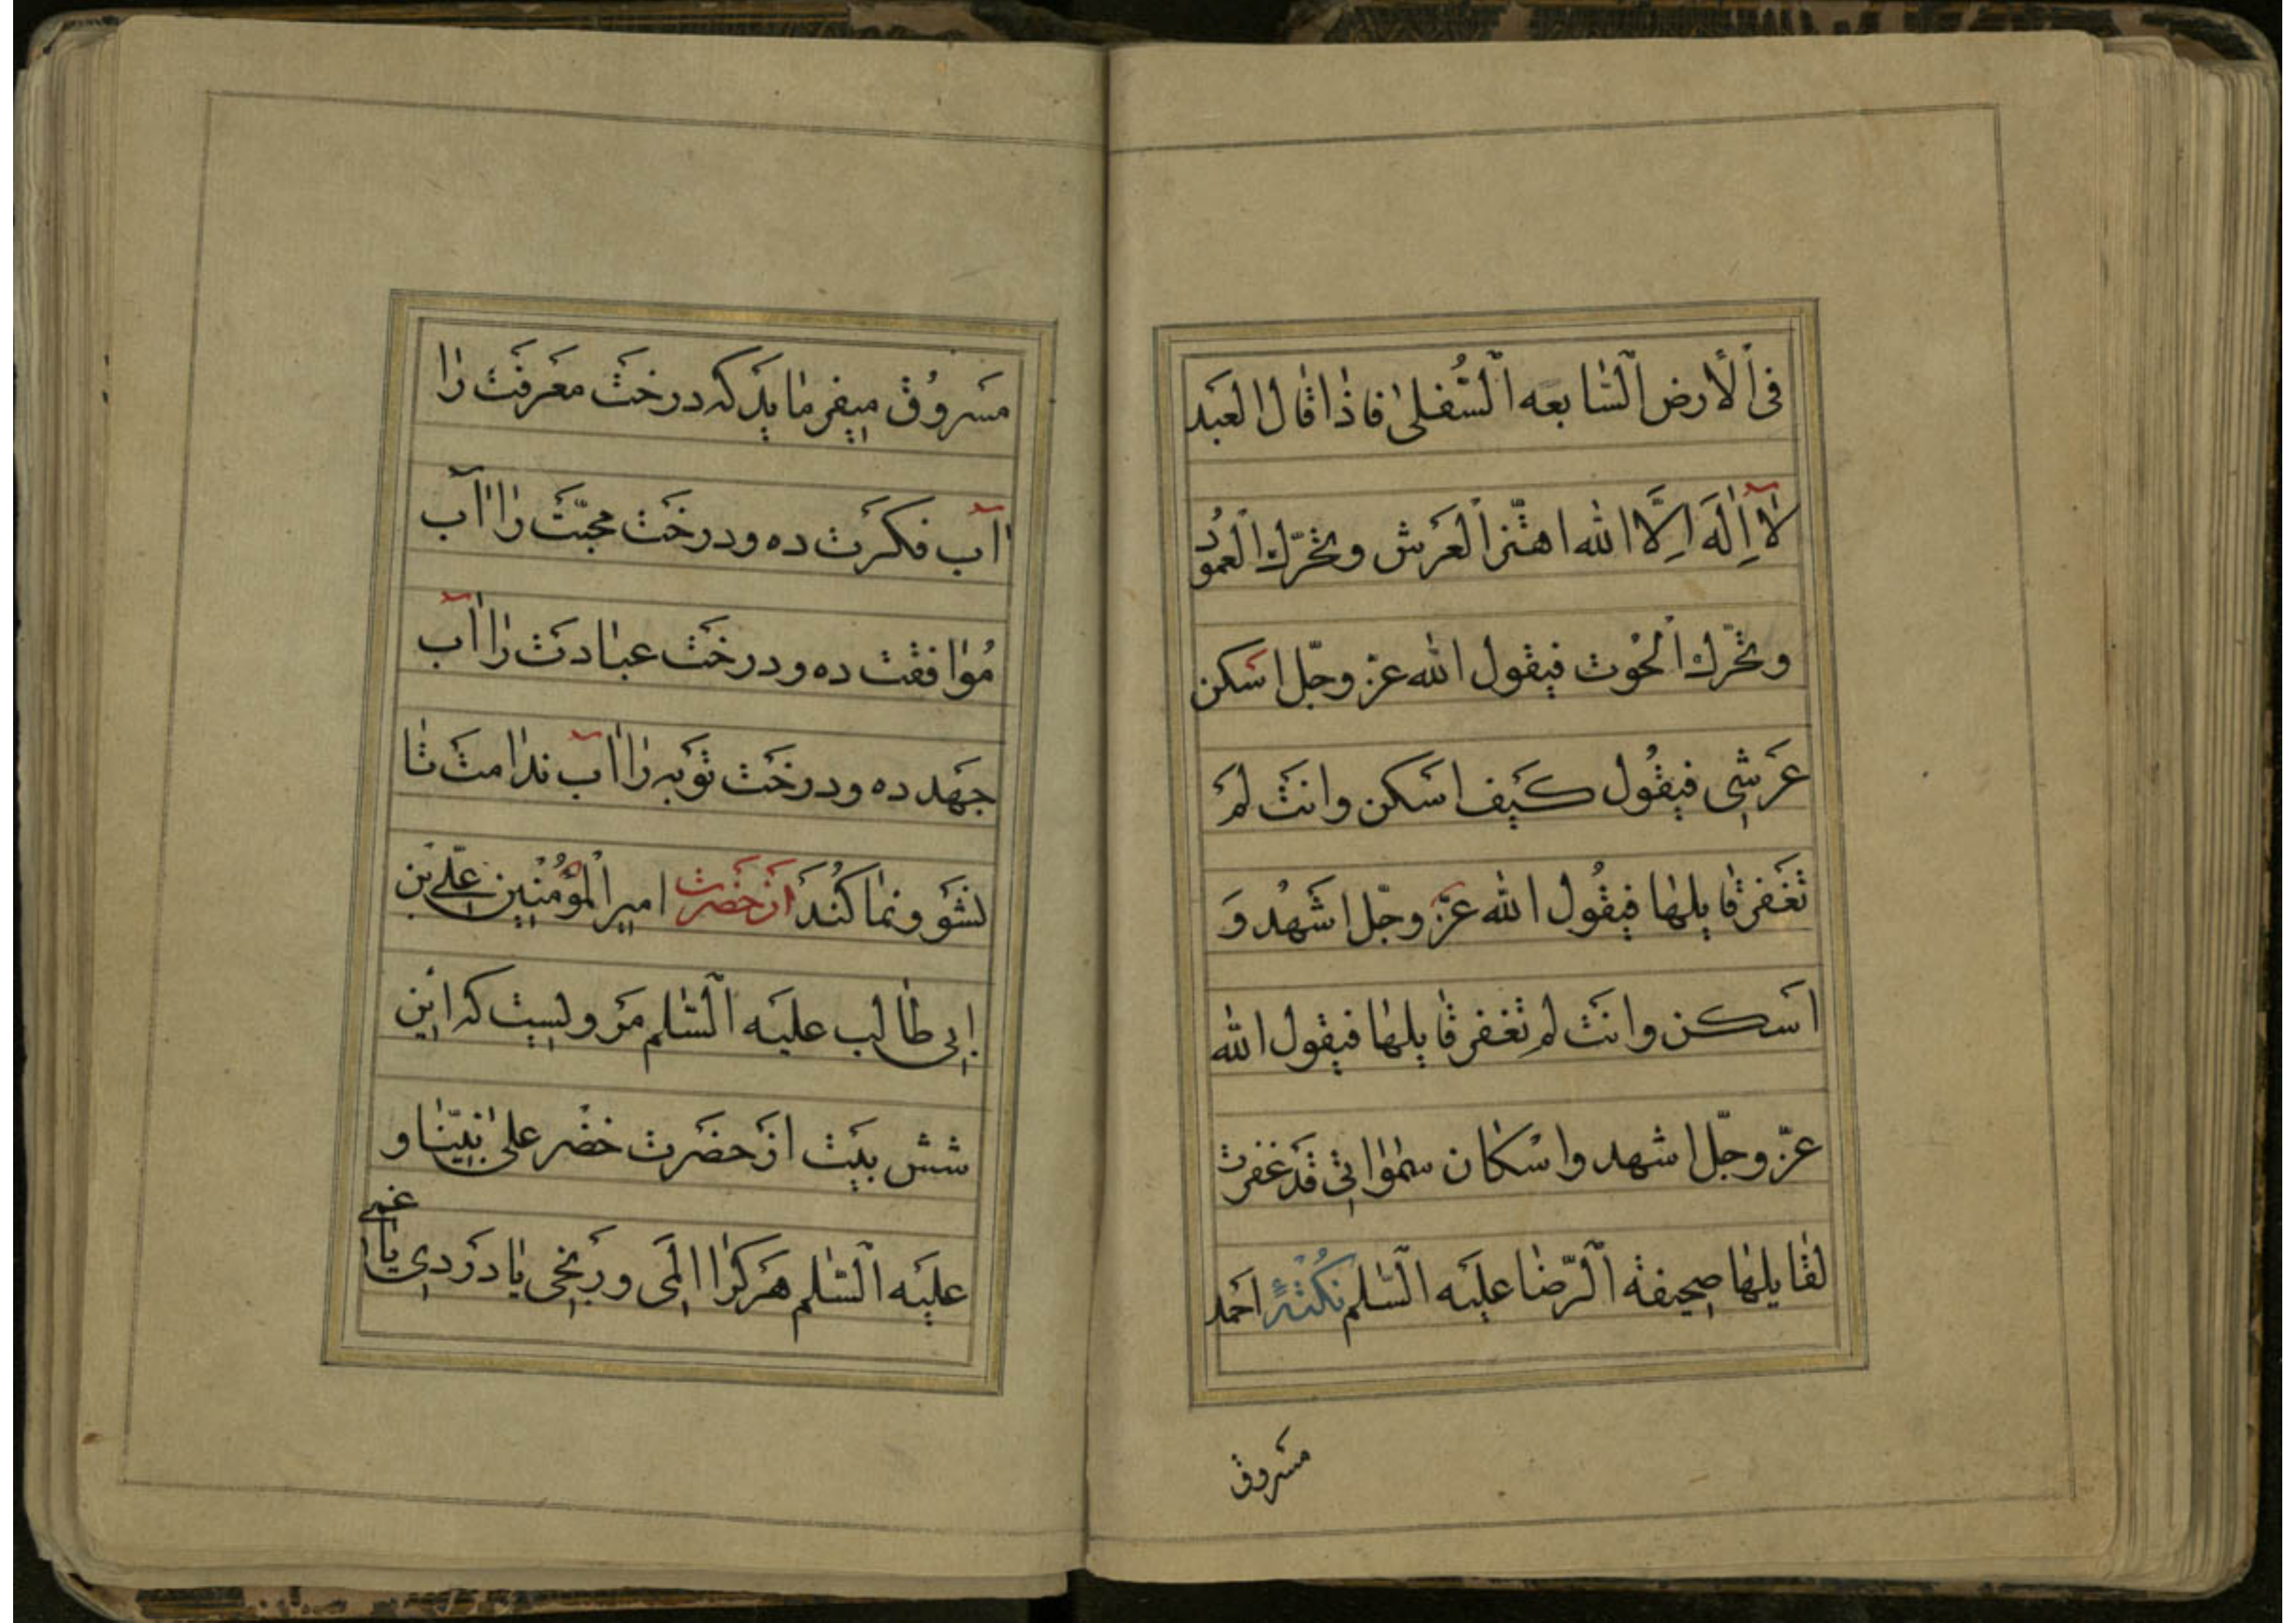 فِی اْلأرض اَلسّٰابعَه اَلسُّفلیٰ فاذٰا قٰال العَبد
لاٰۤ اِلٰهَ اِلَّا الله اهتّز اْلعَرش وتحَرّك اْلعمُود
وتحَّرك اْلحُوت فیقول الله عزّ وجّل اسَکن
عَرشِی فیقُول کَیف اسَکن وانتَ لمَ
تَغفر قٰایلهٰا فیقُول الله عزّ وجّل اشَهُد وَ
اسَکن وانتَ لم تَغفر قٰایلهٰا فیقول الله
عزّ وجّل اشهد واسْکٰان سمٰوٰاتِی قَد غفرت
لقٰایلهٰا صحیفة اَلرّضٰا علیَه اَلسّٰلم نُکْتهٌ احَمد
مسَروق
مسَروُق میفرمٰاید که درخَت معَرفَت رٰا
اۤب فکرَت ده و درخَت محبّتَ رٰا اۤب
مُوٰافقت ده و درخَت عبٰادتَ رٰا اۤب
جهَد ده و درخَت توَبه رٰا اۤب ندٰامتَ تٰا
نشَو ونمٰا کُنَد ازَ حضَرت امیر اْلمؤُمنْین علّی بن
ابِی طٰالب علیَه اَلسّٰلم مَرویست که ایَن
شش بیَت ازَ حضَرت خضْر علیٰ نبیّنٰا و
علیَه اَلسّٰلم هَرکرٰا المَی ورَنجی یٰا دَردی یٰا غمی